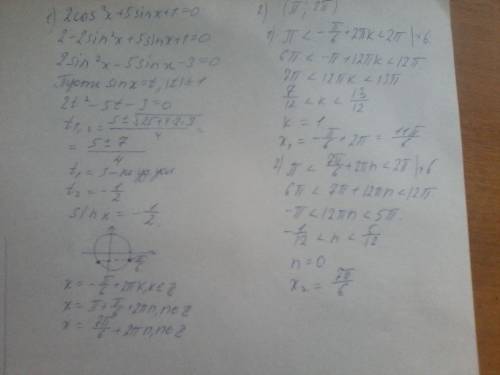 1) 2cos²x+5sinx+1=0
2-2sin²x+5sinx+1=0
2sin²x-5sinx-3=0
Пусть sinx=t, |t|≤1
2t²-5t-3=0
t₁,₂ = (5±√(25+4·2·3))/4 =
= (5±7)/4
t₁=3-не уд усл
t₂=-1/2
sinx=-1/2
-π/6
x=-π/6+2πk, k∈Z
x=π+π/6+2πn, n∈Z
x=7π/6+2πn, n∈Z
2) (π; 2π)
1) π<-π/6+2πk<2π |·6
6π<-π+12πk<12π
7π<12πk<13π
7/12<k<13/12
k=1
x₁=-π/6+2π=11π/6
2) π<7π/6+2πn<2π |·6
6π<7π+12πn<12π
-π<12πn<5π
-1/12<n<5/12
n=0
x₂=7π/6